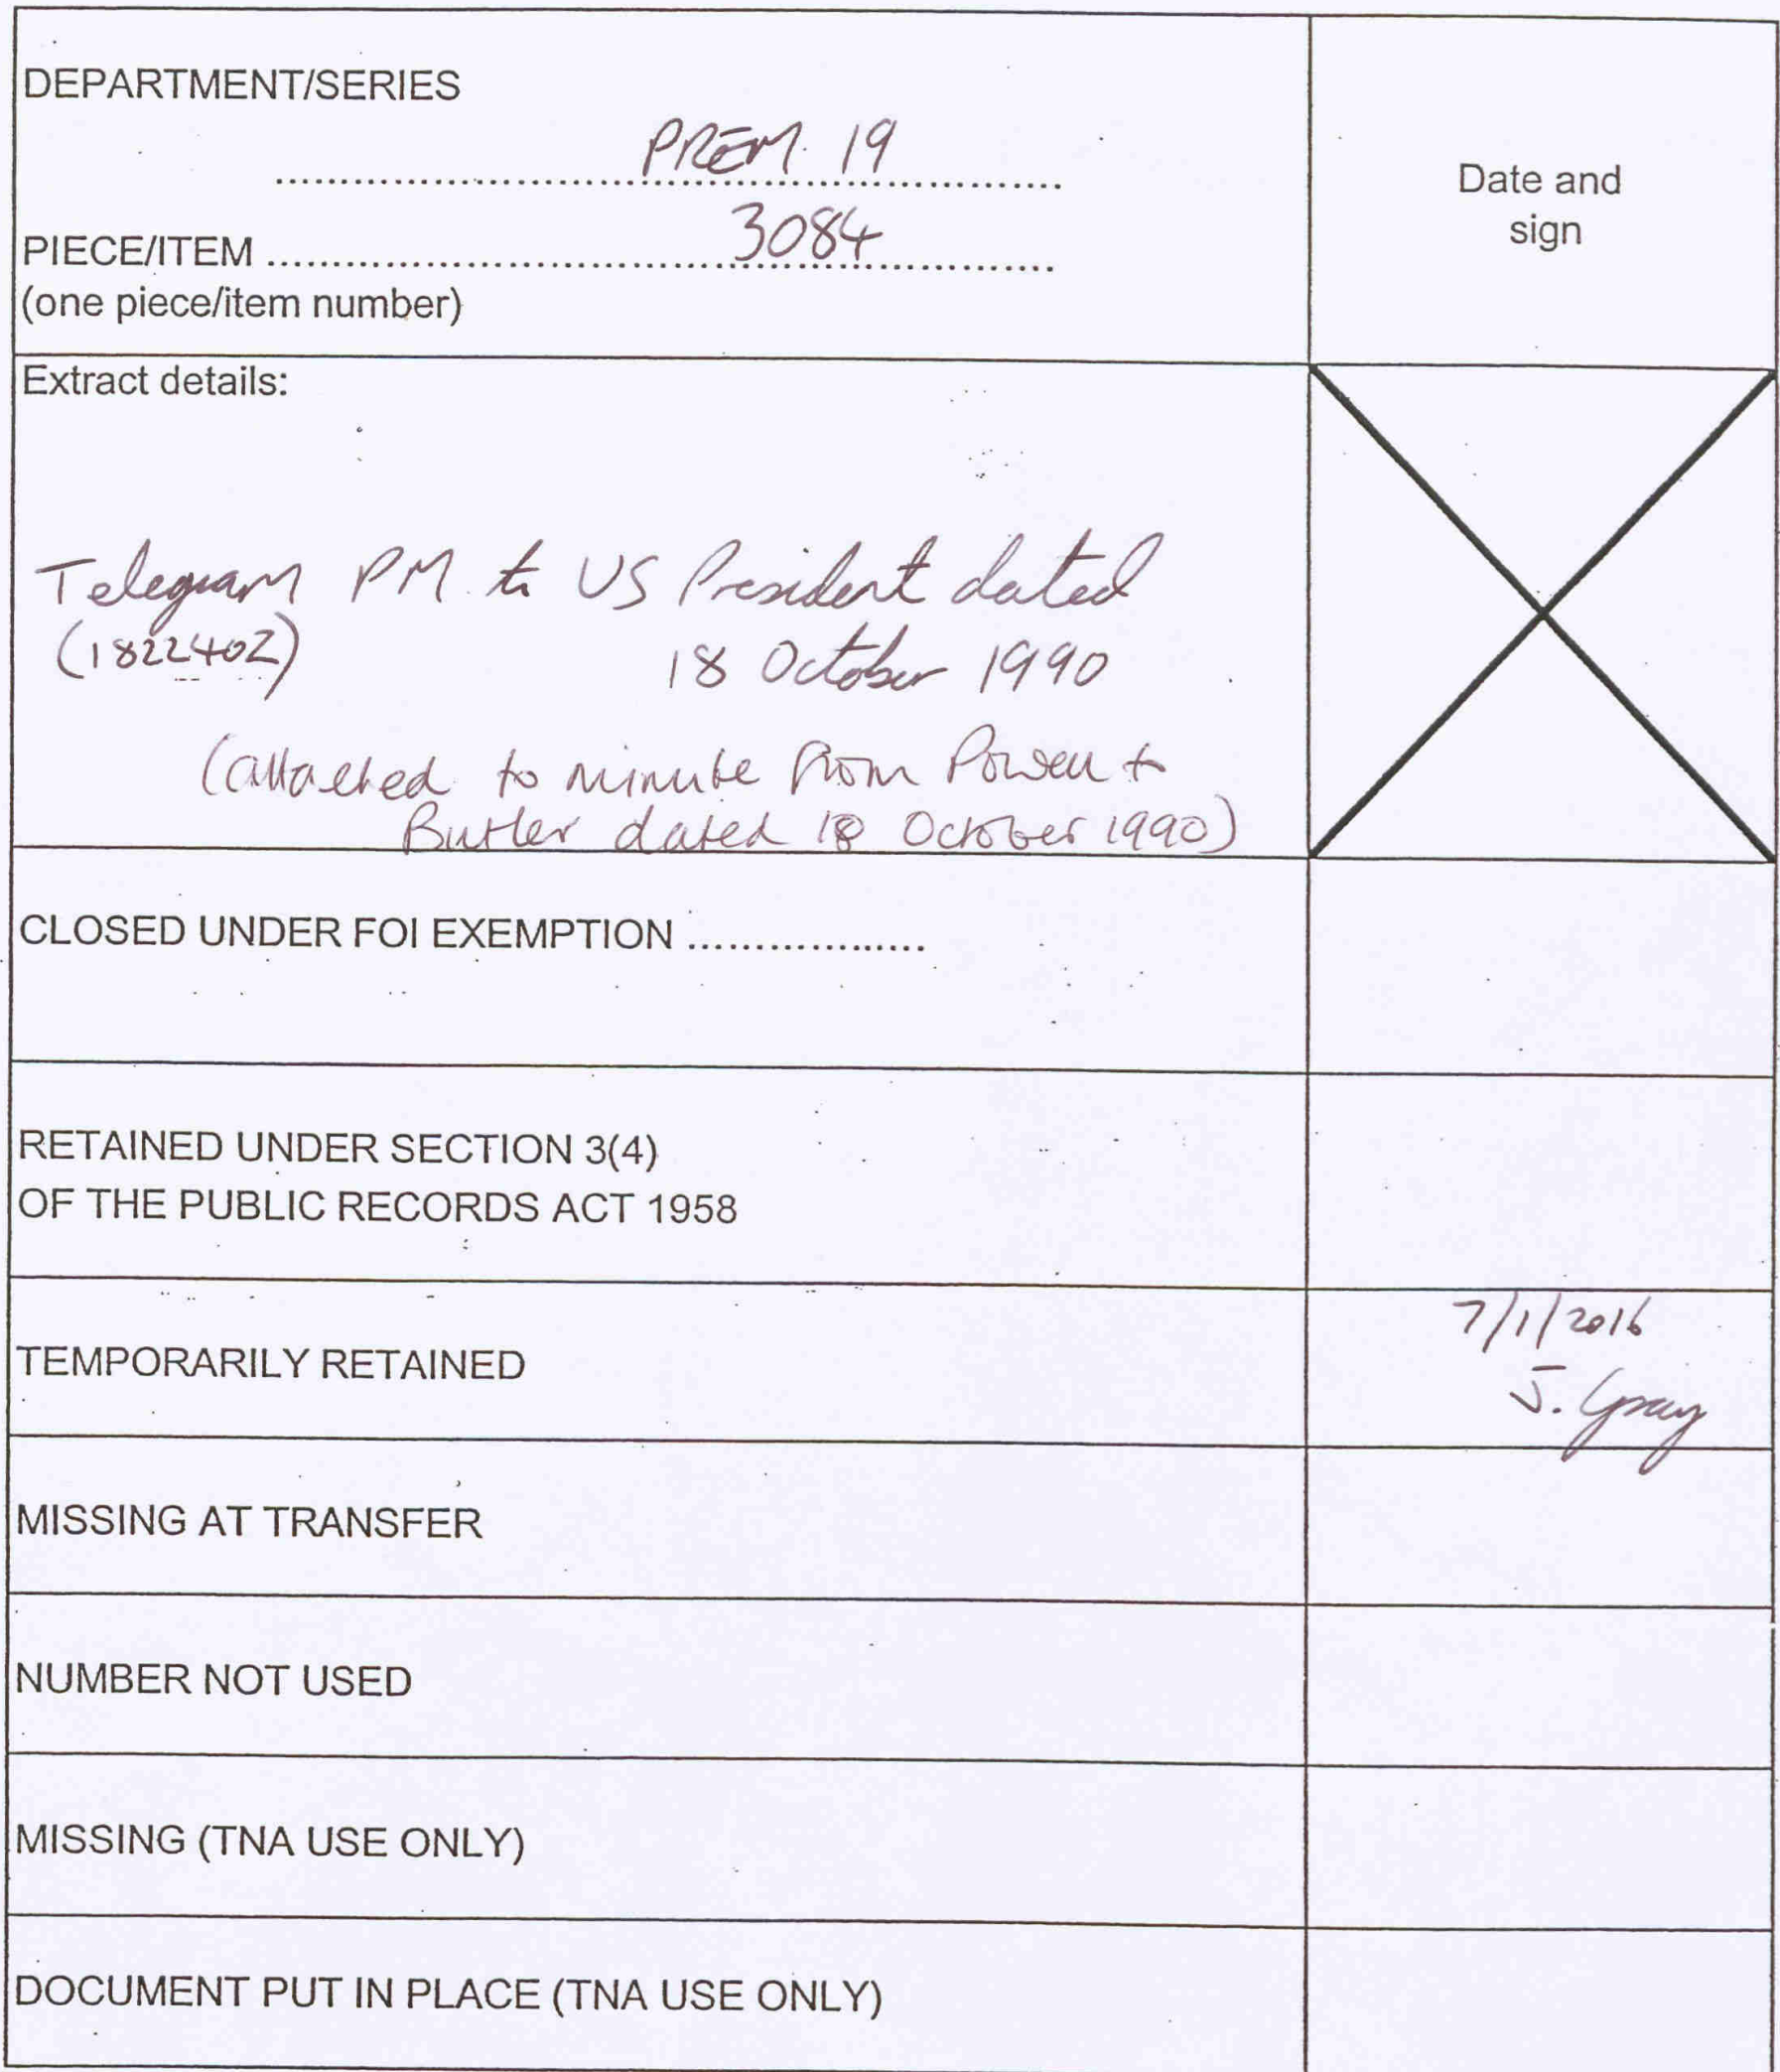 DEPARTMENT/SERIES
PREM 19
Date and
sign
PIECE/ITEM ........................................ 3084
(one piece/item number)
Extract details:
Telegram PM to US President dated
(182240Z) 18 October 1990
(attached to minute from Powell to
Butler dated 18 October 1990)
CLOSED UNDER FOI EXEMPTION ..................
RETAINED UNDER SECTION 3(4)
OF THE PUBLIC RECORDS ACT 1958
TEMPORARILY RETAINED
7/1/2016
J. Gray
MISSING AT TRANSFER
NUMBER NOT USED
MISSING (TNA USE ONLY)
DOCUMENT PUT IN PLACE (TNA USE ONLY)